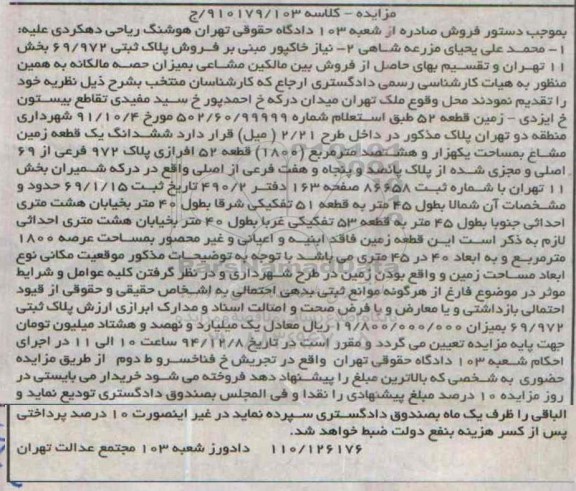 مزایده - کلاسه ۹۱۰۱۷۹/۱۰۳/ج
بموجب دستور فروش صادره از شعبه ۱۰۳ دادگاه حقوقی تهران هوشنگ ریاحی دهکردی علیه:
۱- محمد علی یحیای مزرعه شاهی ۲- نیاز خاکپور مبنی بر فروش پلاک ثبتی ۶۹/۹۷۲ بخش
۱۱ تهران و تقسیم بهای حاصل از فروش بین مالکین مشاعی بمیزان حصه مالکانه به همین
منظور به هیات کارشناسی رسمی دادگستری ارجاع که کارشناسان منتخب بشرح ذیل نظریه خود
را تقدیم نمودند محل وقوع ملک تهران میدان درکه خ احمدپور خ سید مفیدی تقاطع بیستون
خ ایزدی - زمین قطعه ۵۲ طبق استعلام شماره ۵۰۲/۶۰/۹۹۹۹۹ مورخ ۹۱/۱۰/۴ شهرداری
منطقه دو تهران پلاک مذکور در داخل طرح ۲/۲۱ ( میل) قرار دارد ششدانگ یک قطعه زمین
مشاع بمساحت یکهزار و هشتصد مترمربع (۱۸۰۰) قطعه ۵۲ افرازی پلاک ۹۷۲ فرعی از ۶۹
اصلی و مجزی شده از پلاک پانصد و پنجاه و هفت فرعی از اصلی واقع در درکه شمیران بخش
۱۱ تهران با شماره ثبت ۸۶۶۵۸ صفحه ۱۶۳ دفتر ۴۹۰/۲ تاریخ ثبت ۶۹/۱/۱۵ حدود و
مشخصات آن شمالا بطول ۴۵ متر به قطعه ۵۱ تفکیکی شرقا بطول ۴۰ متر بخیابان هشت متری
احداثی جنوبا بطول ۴۵ متر به قطعه ۵۳ تفکیکی غربا بطول ۴۰ متر بخیابان هشت متری احداثی
لازم به ذکر است این قطعه زمین فاقد ابنیه و اعیانی و غیر محصور بمساحت عرصه ۱۸۰۰
مترمربع و به ابعاد ۴۰ در ۴۵ متری می باشد با توجه به توضیحات مذکور موقعیت مکانی نوع
ابعاد مساحت زمین و واقع بودن زمین در طرح شهرداری و در نظر گرفتن کلیه عوامل و شرایط
موثر در موضوع فارغ از هرگونه موانع ثبتی بدهی احتمالی به اشخاص حقیقی و حقوقی از قیود
احتمالی بازداشتی و یا معارض و با فرض صحت و اصالت اسناد و مدارک ابرازی ارزش پلاک ثبتی
۶۹/۹۷۲ بمیزان ۱۹/۸۰۰/۰۰۰/۰۰۰ ریال معادل یک میلیارد و نهصد و هشتاد میلیون تومان
جهت پایه مزایده تعیین می گردد و مقرر است در تاریخ ۹۴/۱۲/۸ ساعت ۱۰ الی ۱۱ در اجرای
احکام شعبه ۱۰۳ دادگاه حقوقی تهران واقع در تجریش خ فناخسرو ط دوم از طریق مزایده
حضوری به شخصی که بالاترین مبلغ را پیشنهاد دهد فروخته می شود خریدار می بایستی در
روز مزایده ۱۰ درصد مبلغ پیشنهادی را نقدا و فی المجلس بصندوق دادگستری تودیع نماید و
الباقی را ظرف یک ماه بصندوق دادگستری سپرده نماید در غیر اینصورت ۱۰ درصد پرداختی
پس از کسر هزینه بنفع دولت ضبط خواهد شد.
۱۱۰/۱۲۶۱۷۶ دادورز شعبه ۱۰۳ مجتمع عدالت تهران